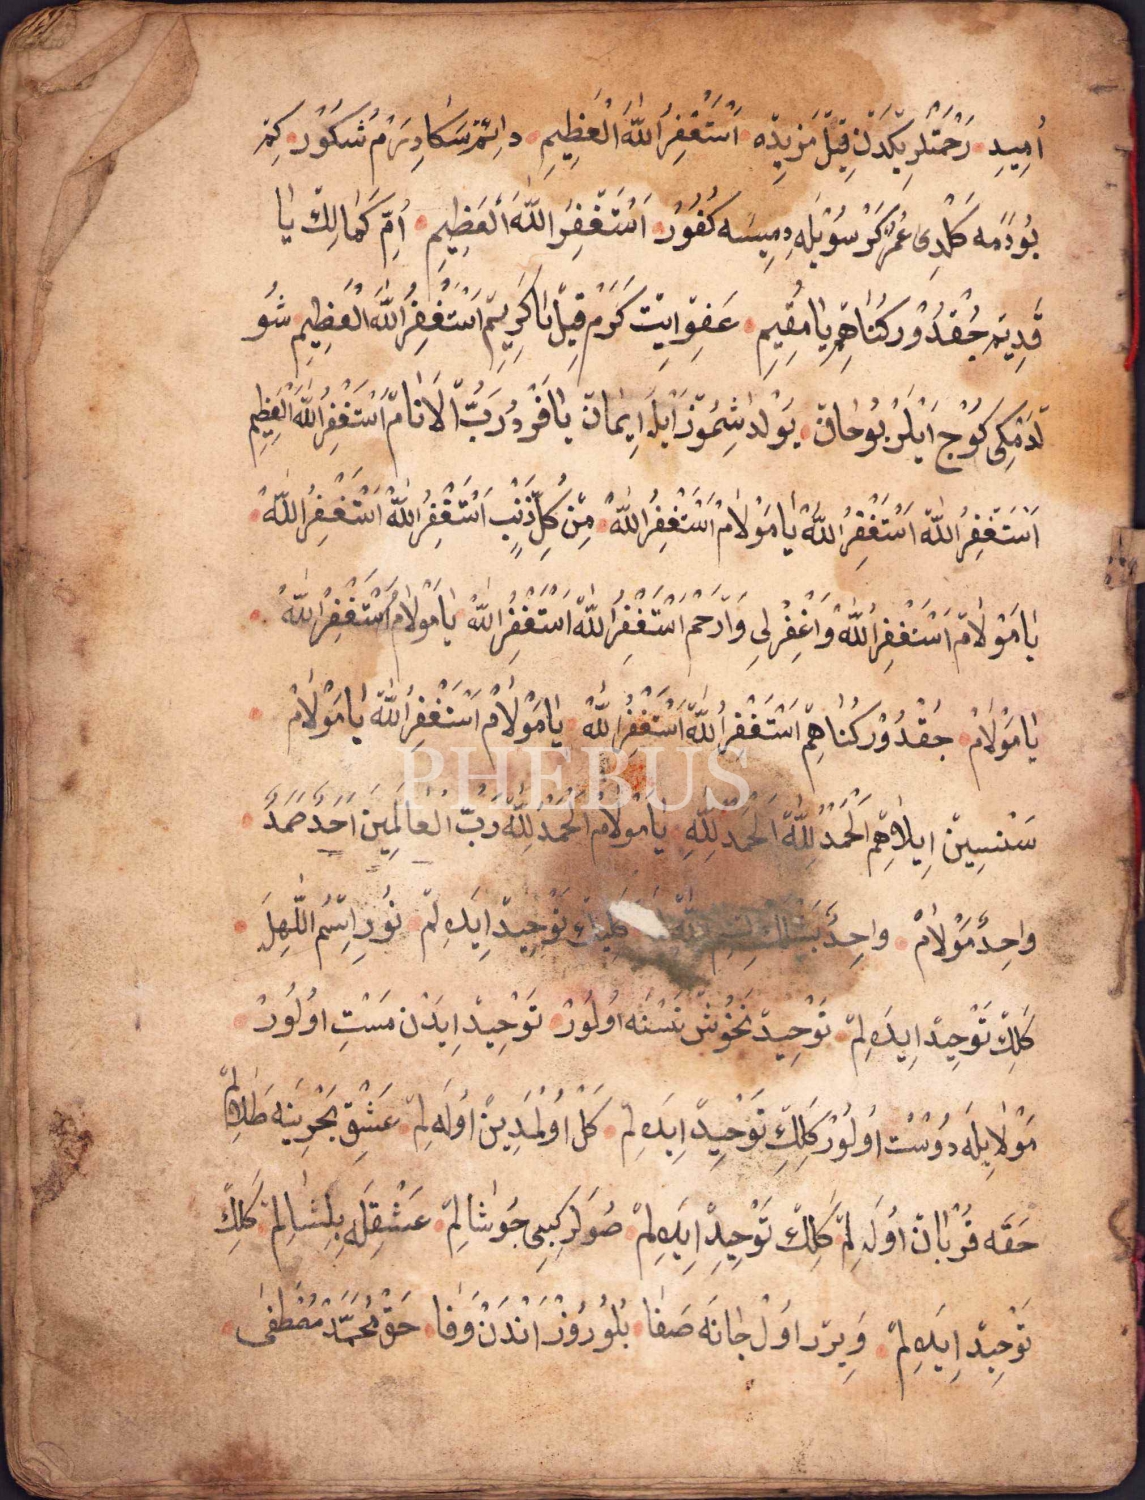 اُمِيدِ رَحْمَتْلَرِيكْدَنْ قِيلْ مَزِيدَه اَسْتَغْفِرُ اللّٰهَ الْعَظِيمِ دَائِمْ سَكَا دِيرَمْ شَكُورْ كِمْ
بُودَمَه كَلْدِى عُمْر سُوَيْلَه دِيمِيسَه كَفُورْ اَسْتَغْفِرُ اللّٰهَ الْعَظِيمِ اُمِّ كَمَالِكْ يَا
قَدِيمْ جُقْدُورْ كُنَاهِمْ يَا مُقِيمِ عَفِوْ اِيتْ كَرَمْ قِيلْ يَا كَرِيمْ اَسْتَغْفِرُ اللّٰهَ الْعَظِيمِ شُو
دَمْكِى كُوجْ اَيْلَرْ بُو جَانْ يُولْدَاشِمُوزْ اَيْلَه اِيمَانْ يَا فَرْدُ رَبُّ الْاَنَامْ اَسْتَغْفِرُ اللّٰهَ الْعَظِيمِ
اَسْتَغْفِرُ اللّٰهْ اَسْتَغْفِرُ اللّٰهْ يَا مَوْلَامْ اَسْتَغْفِرُ اللّٰهْ مِنْ كُلِّ ذَنْبٍ اَسْتَغْفِرُ اللّٰهْ اَسْتَغْفِرُ اللّٰهْ
يَا مَوْلَامْ اَسْتَغْفِرُ اللّٰهْ وَاغْفِرْ لِى وَارْحَمْ اَسْتَغْفِرُ اللّٰهْ اَسْتَغْفِرُ اللّٰهْ يَا مَوْلَامْ اَسْتَغْفِرُ اللّٰهْ
يَا مَوْلَامْ جُقْدُورْ كُنَاهِمْ اَسْتَغْفِرُ اللّٰهْ اَسْتَغْفِرُ اللّٰهْ يَا مَوْلَامْ اَسْتَغْفِرُ اللّٰهْ يَا مَوْلَامْ
PHEBUS
سَنْسِينْ اِيلَاهِمْ اَلْحَمْدُ لِلّٰهْ اَلْحَمْدُ لِلّٰهْ يَا مَوْلَامْ اَلْحَمْدُ لِلّٰهْ رَبِّ الْعَالَمِينَ اَحَدْ صَمَدْ
وَاحِدْ مَوْلَامْ وَاحِدْ تَوْحِيدْ اِيدَه لِمْ نُورِ اِسْمُ اللّٰهِلَه
كَلِكْ تَوْحِيدْ اِيدَه لِمْ تَوْحِيدْ نَخُوشْ نَسْنَه اُولُورْ تَوْحِيدْ اِيدَنْ مَسْتِ اُولُورْ
مَوْلَايِلَه دُوسْت اُولُورْ كَلِكْ تَوْحِيدْ اِيدَه لِمْ كَلْ اُولْمَدِينْ اُولَه لِمْ عَشْقِ بَحْرِينَه طَلَالِمْ
حَقَّه قُرْبَانْ اُولَه لِمْ كَلِكْ تَوْحِيدْ اِيدَه لِمْ صُولَرْ كِبِى جُوشَالِمْ عَشْقِلَه بِلِشَالِمْ كَلِكْ
تَوْحِيدْ اِيدَه لِمْ وِيرَرْ اَوْلْ جَانَه صَفَا بُلُورُوزْ اَنْدَنْ وَفَا حَقْ مُحَمَّدْ مُصْطَفٰى